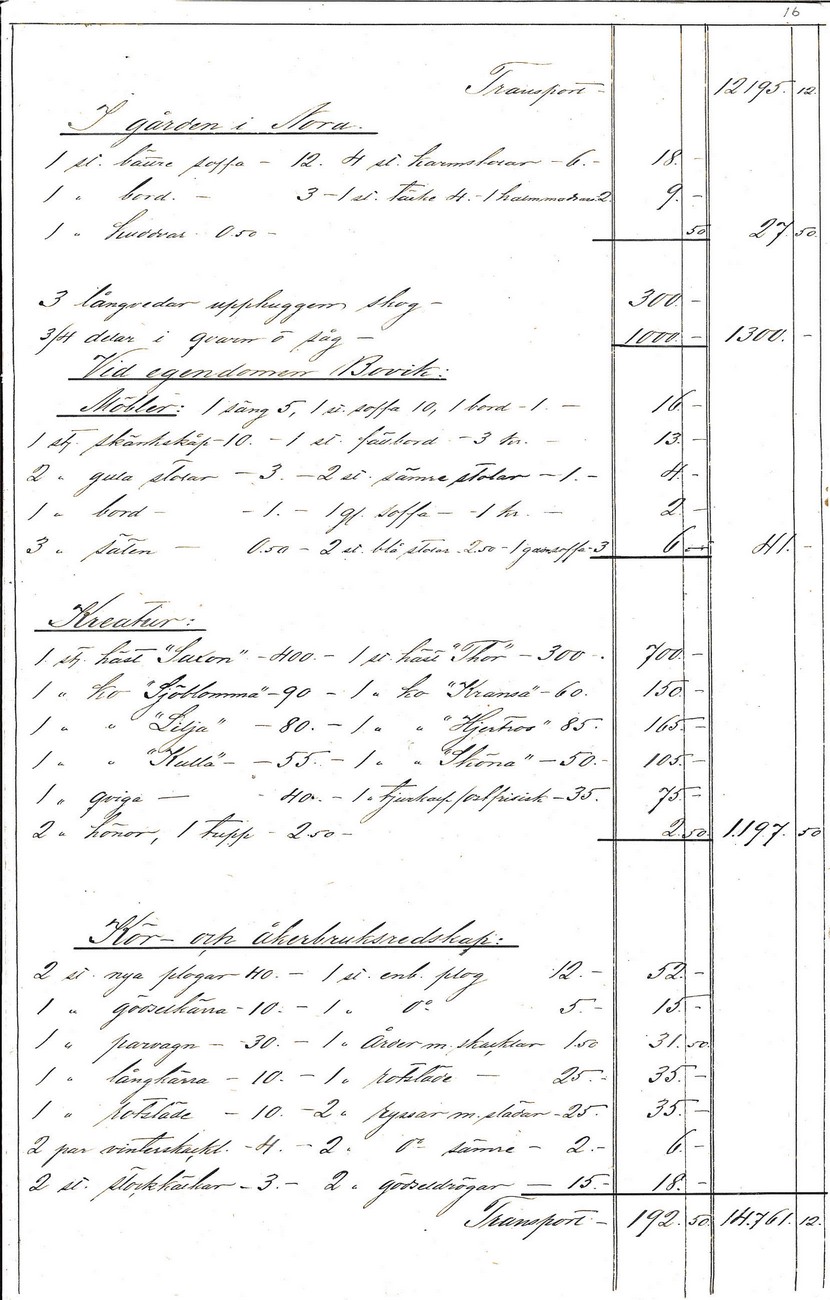 16
Transport - 12195. 12.
I gården i Nora.
1 st. bättre soffa - 12. 4 st. karmstolar - 6. - 18. -
1 " bord. - 3 - 1 st. täcke 4. - 1 halmmadrass 2. 9. -
1 " huddvar 0.50 - 50 27. 50.
3 långvedar upphuggen skog - 300. -
3/4 delar i qvarn o såg - 1000. - 1300. -
Vid egendomen Bovik:
Möbler: 1 säng 5, 1 st. soffa 10, 1 bord - 1. - 16. -
1 stj. skänkskåp - 10. - 1 st. fälbord - 3 kr. - 13. -
2 " gula stolar - 3. - 2 st. sämre stolar - 1. - 4. -
1 " bord - - 1. - 1 gl. soffa - - 1 kr. - 2 -
3 " säten - 0.50 - 2 st. blå stolar 2.50 - 1 soffa - 3 6 - 41. -
Kreatur:
1 stj. häst "Saxon" - 400. - 1 st. häst "Thor" - 300 - 700. -
1 " ko "Sjöblomma" - 90 - 1 " ko "Kransa" - 60. 150. -
1 " " "Lilja" - 80. - 1 " " "Hjertros" 85. 165. -
1 " " "Kulla" - - 55. - 1 " " "Sköna" - 50. - 105. -
1 " qviga - 40. - 1 " tjurkalf, ostfrisisk - 35. 75 -
2 " hönor, 1 tupp - 2.50 - 2. 50. 1.197. 50
Kör- och åkerbruksredskap:
2 st. nya plogar 40. - 1 st. enb. plog 12. - 52. -
1 " gödselkärra - 10. - 1 " do 5. - 15. -
1 " parvagn - 30. - 1 " Årder m. skacklar 1.50 31. 50.
1 " långkärra - 10. - 1 " rotsläde - 25. - 35. -
1 " rotsläde - 10. - 2 " ryssar m. slädar - 25. 35. -
2 par vinterskackl. - 4. - 2 " do sämre - 2. - 6. -
2 st. stockkälkar - 3. - 2 " gödseldrögar - 15. - 18. -
Transport - 192. 50. 14.761. 12.